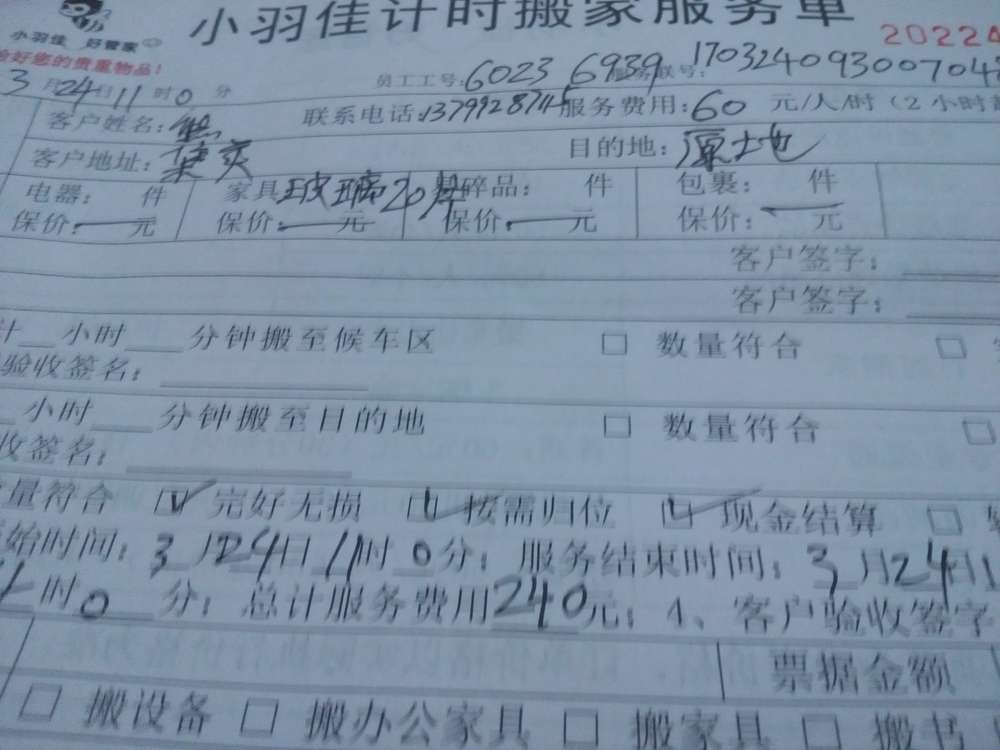 小羽佳计时搬家服务单
小羽佳 好管家
好您的贵重物品!
2022
3月24日11时0分 员工工号:6023 6939 联号:1703240930070
客户姓名:熊 联系电话: 服务费用:60元/人/时(2小时
客户地址: 目的地:原地
电器: 件 家具玻璃20 碎品: 件 包裹: 件
保价:—元 保价:—元 保价:—元 保价:—元
客户签字:
客户签字:
计 小时 分钟搬至候车区 □ 数量符合 □
验收签名:
小时 分钟搬至目的地 □ 数量符合 □
收签名:
量符合 ☑ 完好无损 ☑ 按需归位 ☑ 现金结算 □
始时间:3月24日11时0分;服务结束时间:3月24日1
时0分;总计服务费用240元;4、客户验收签字
票据金额
□ 搬设备 □ 搬办公家具 □ 搬家具 □ 搬书